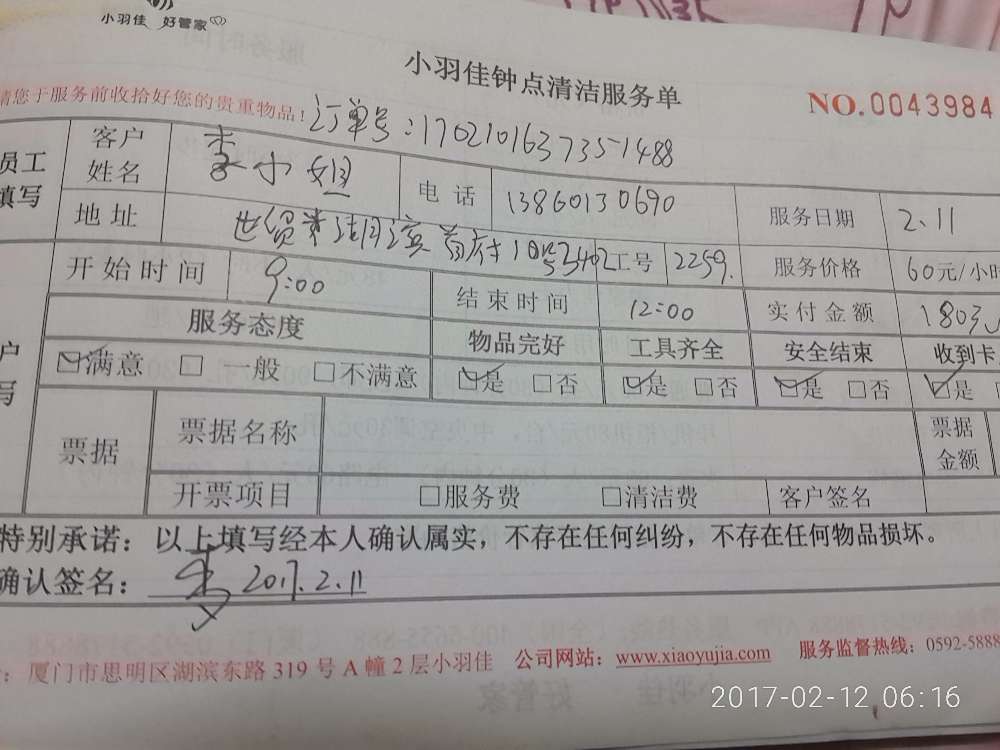 小羽佳 好管家
小羽佳钟点清洁服务单
NO.0043984
请您于服务前收拾好您的贵重物品！订单号：17021016373351488
员工填写 客户姓名 李小姐 电话 13860130690 服务日期 2.11
地址 世贸 湖滨首府 10号3402 工号 2259. 服务价格 60元/小时
开始时间 9:00 结束时间 12:00 实付金额 180
服务态度 物品完好 工具齐全 安全结束 收到卡
户 写 ☑满意 □一般 □不满意 ☑是 □否 ☑是 □否 ☑是 □否 ☑是
票据 票据名称 票据金额
开票项目 □服务费 □清洁费 客户签名
特别承诺：以上填写经本人确认属实，不存在任何纠纷，不存在任何物品损坏。
确认签名： 2017.2.11
：厦门市思明区湖滨东路 319 号 A 幢 2 层小羽佳 公司网站：www.xiaoyujia.com 服务监督热线：0592-5888
2017-02-12 06:16